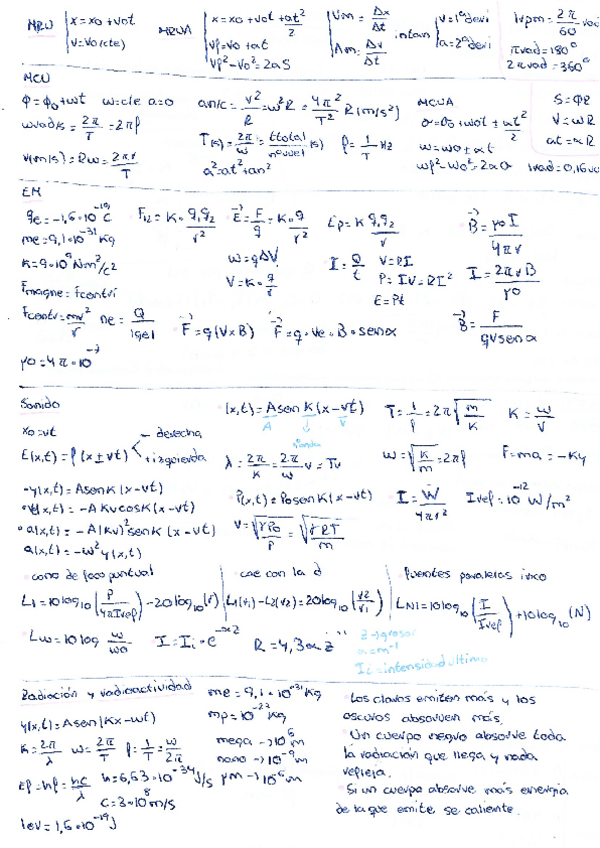 MRU { x = x0 + v0t
v = v0 (cte)
MRUA { x = x0 + v0t + at²/2
vf = v0 + at
vf² - v0² = 2aS
{ Vm = Δx/Δt
Am = Δv/Δt
instan { v = 1ª deri
a = 2ª deri
1rpm = 2π/60 rad
πrad = 180º
2πrad = 360º
MCU
φ = φ0 + ωt ω = cte a = 0
ωrad/s = 2π/T = 2πf
v(m/s) = Rω = 2πr/T
an/c = v²/R = ω²R = 4π²/T² R(m/s²)
T(s) = 2π/ω = t total/nºvuel (s) f = 1/T Hz
a² = at² + an²
MCUA
σ = σ0 + ω0t + αt²/2
ω = ω0 + αt
ωf² - ω0² = 2ασ
S = φR
V = ωR
at = αR
1rad = 0,16vu
EM
qe = -1,6·10⁻¹⁹ C
me = 9,1·10⁻³¹ Kg
K = 9·10⁹ Nm²/c²
Fmagne = Fcentri
Fcentr = mv²/r ne = Q/|qe|
μ0 = 4π·10⁻⁷
F12 = K·q1q2/r² E = F/q = K·q/r²
W = qΔV
V = K·q/r
Ep = K q1q2/r
I = Q/t V = RI
P = IV = RI²
E = Pt
B = μ0 I/4πr
I = 2πrB/μ0
F = q(V×B) F = q·ve·B·senα
B = F/qVsenα
Sonido
x0 = vt
E(x,t) = f(x±vt) - derecha
+ izquierda
(x,t) = A sen K(x-vt)
A K V
T = 1/f = 2π√(m/K) K = ω/V
λ = 2π/K = 2π/ω · v = Tv
ω = √(K/m) = 2πf F = ma = -Ky
·y(x,t) = A sen K(x-vt)
·v(x,t) = -A Kv cos K(x-vt)
·a(x,t) = -A(Kv)² sen K(x-vt)
a(x,t) = -ω² y(x,t)
P(x,t) = P0 sen K(x-vt)
V = √(γP0/ρ) = √(γRT/m)
I = W/4πr² Iref = 10⁻¹² W/m²
como de foco puntual
L1 = 10log10 (P/4πIref) - 20log10 (r)
cae con la d
L1(r1) - L2(r2) = 20log10 (r2/r1)
fuentes paralelas inco
LN1 = 10log10 (I/Iref) + 10log10 (N)
Lw = 10 log w/w0 I = Ii · e^-αz R = 4,3αz
z → grosor
α = m⁻¹
Ii = intensidad último
Radiación y radioactividad
y(x,t) = A sen(Kx - ωt)
K = 2π/λ ω = 2π/T f = 1/T = ω/2π
Ef = hf = hc/λ h = 6,63·10⁻³⁴ J/s
c = 3·10⁸ m/s
1ev = 1,6·10⁻¹⁹ J
me = 9,1·10⁻³¹ Kg
mp = 10⁻²⁷ Kg
mega → 10⁶ m
nano → 10⁻⁹ m
μm → 10⁻⁶ m
Los claros emiten más y los
oscuros absorven más.
Un cuerpo negro absorve toda
la radiación que llega y nada
refleja.
Si un cuerpo absorve más energia
de la que emite se calienta.